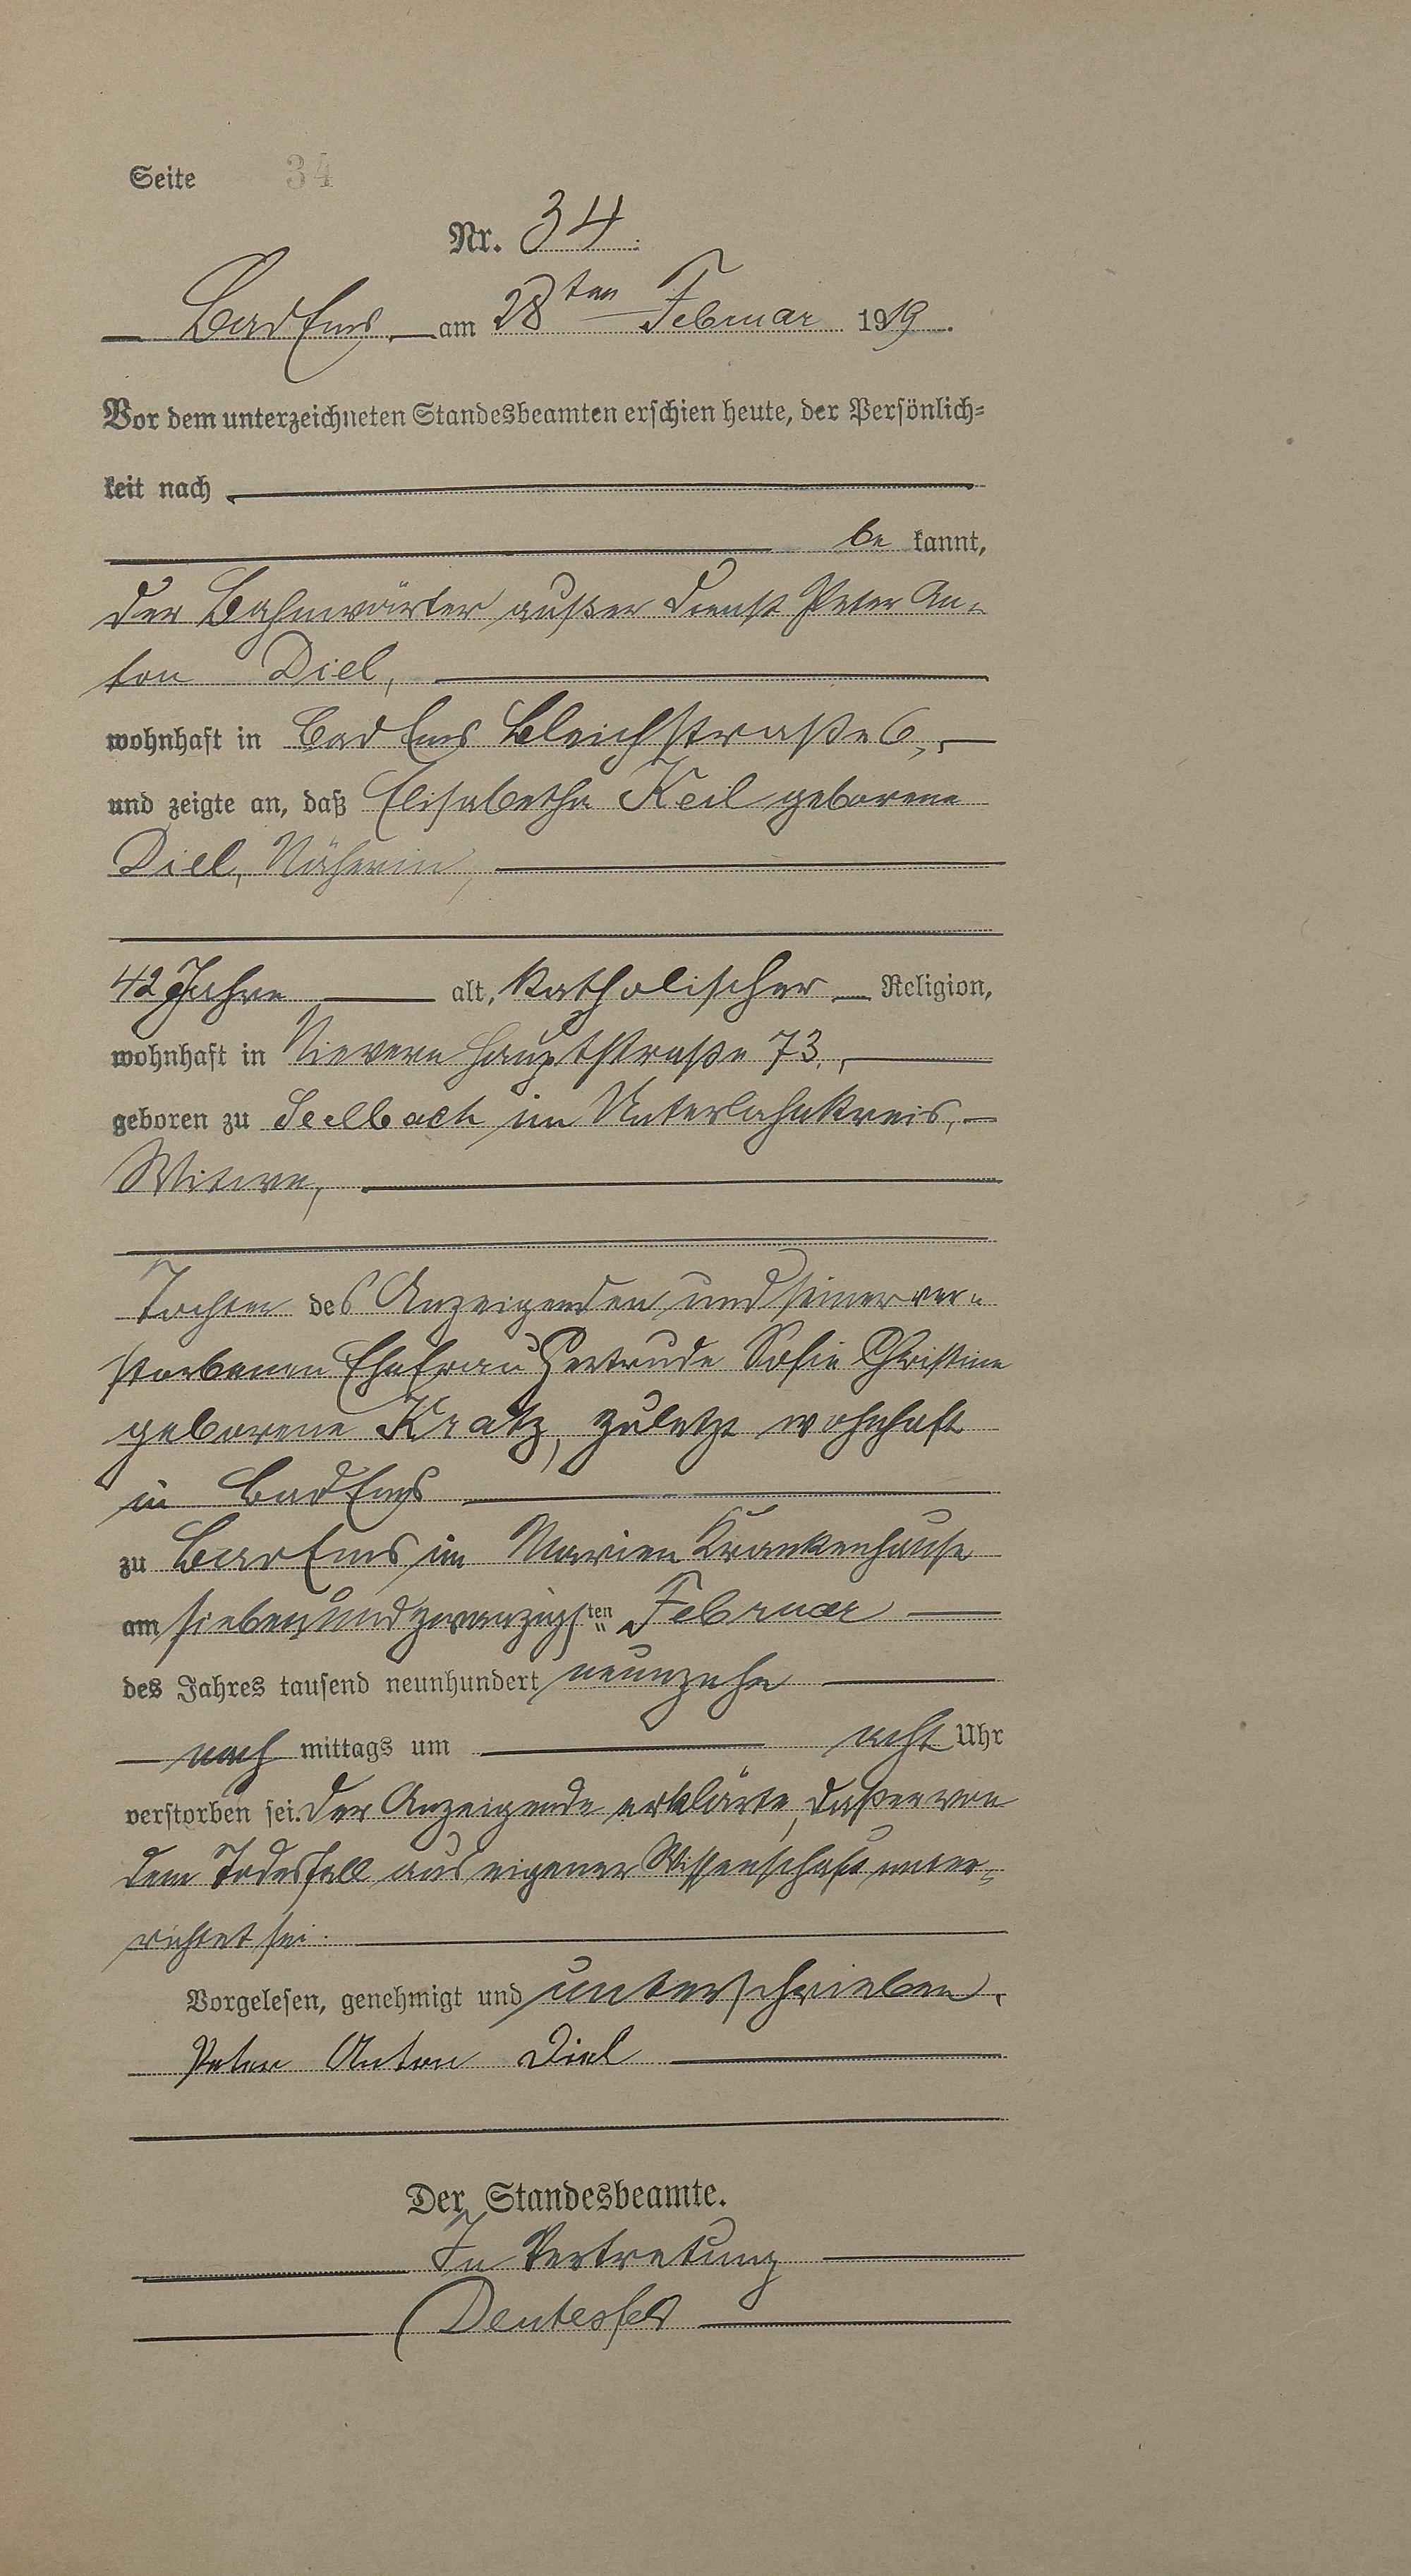 Seite 34
Nr. 34.
Bad Ems, am 28ten Februar 1919.
Vor dem unterzeichneten Standesbeamten erschien heute, der Persönlich=
keit nach
be kannt,
der Bahnwärter außer Dienst Peter An-
ton Diel,
wohnhaft in Bad Ems Bleichstraße 6,
und zeigte an, daß Elisabetha Keil geborene
Diel, Näherin,
42 Jahre alt, katholischer Religion,
wohnhaft in Nievern Hauptstraße 73,
geboren zu Seelbach im Unterlahnkreis,
Witwe,
Tochter des Anzeigenden und seiner ver-
storbenen Ehefrau Gertrude Sofie Christine
geborene Kratz, zuletzt wohnhaft
in Bad Ems
zu Bad Ems im Marien Krankenhause
am siebenundzwanzigsten Februar
des Jahres tausend neunhundert neunzehn
nach mittags um acht Uhr
verstorben sei. Der Anzeigende erklärte, daß er von
dem Todesfall aus eigener Wissenschaft unter-
richtet sei.
Vorgelesen, genehmigt und unterschrieben.
Peter Anton Diel
Der Standesbeamte.
In Vertretung